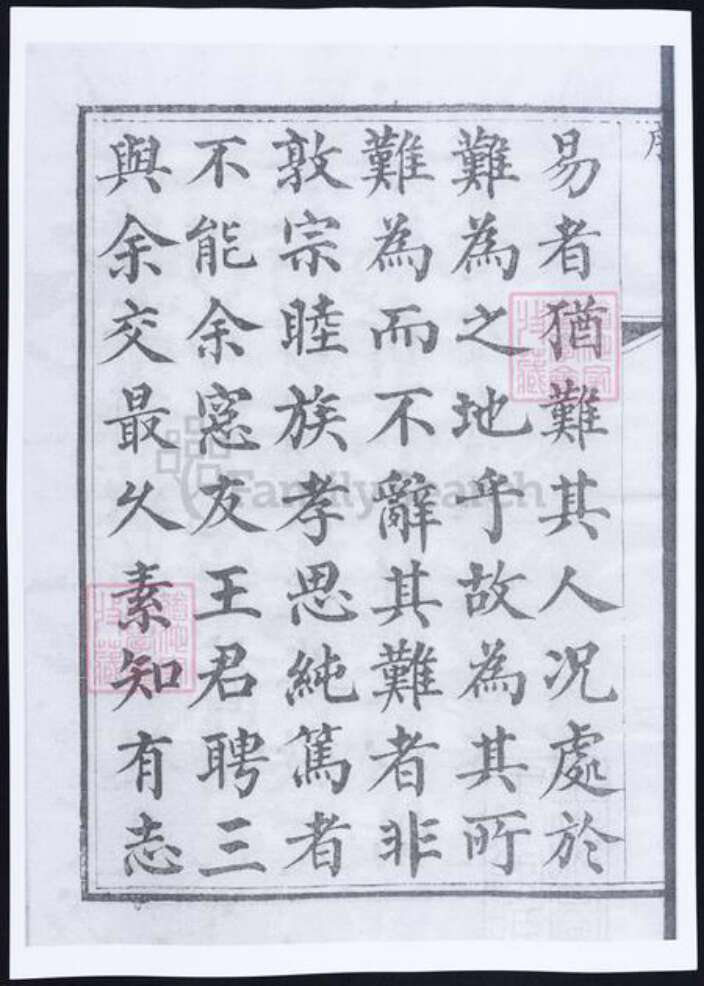 易者猶難其人況處於
難為之地乎故為其所
難為而不辭其難者非
敦宗睦族孝思純篤者
不能余窓友王君聘三
與余交最久素知有志
FamilySearch